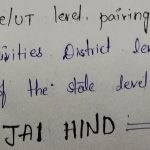 e/UT level. pairing
ivities District le
of the state level
JAI HIND